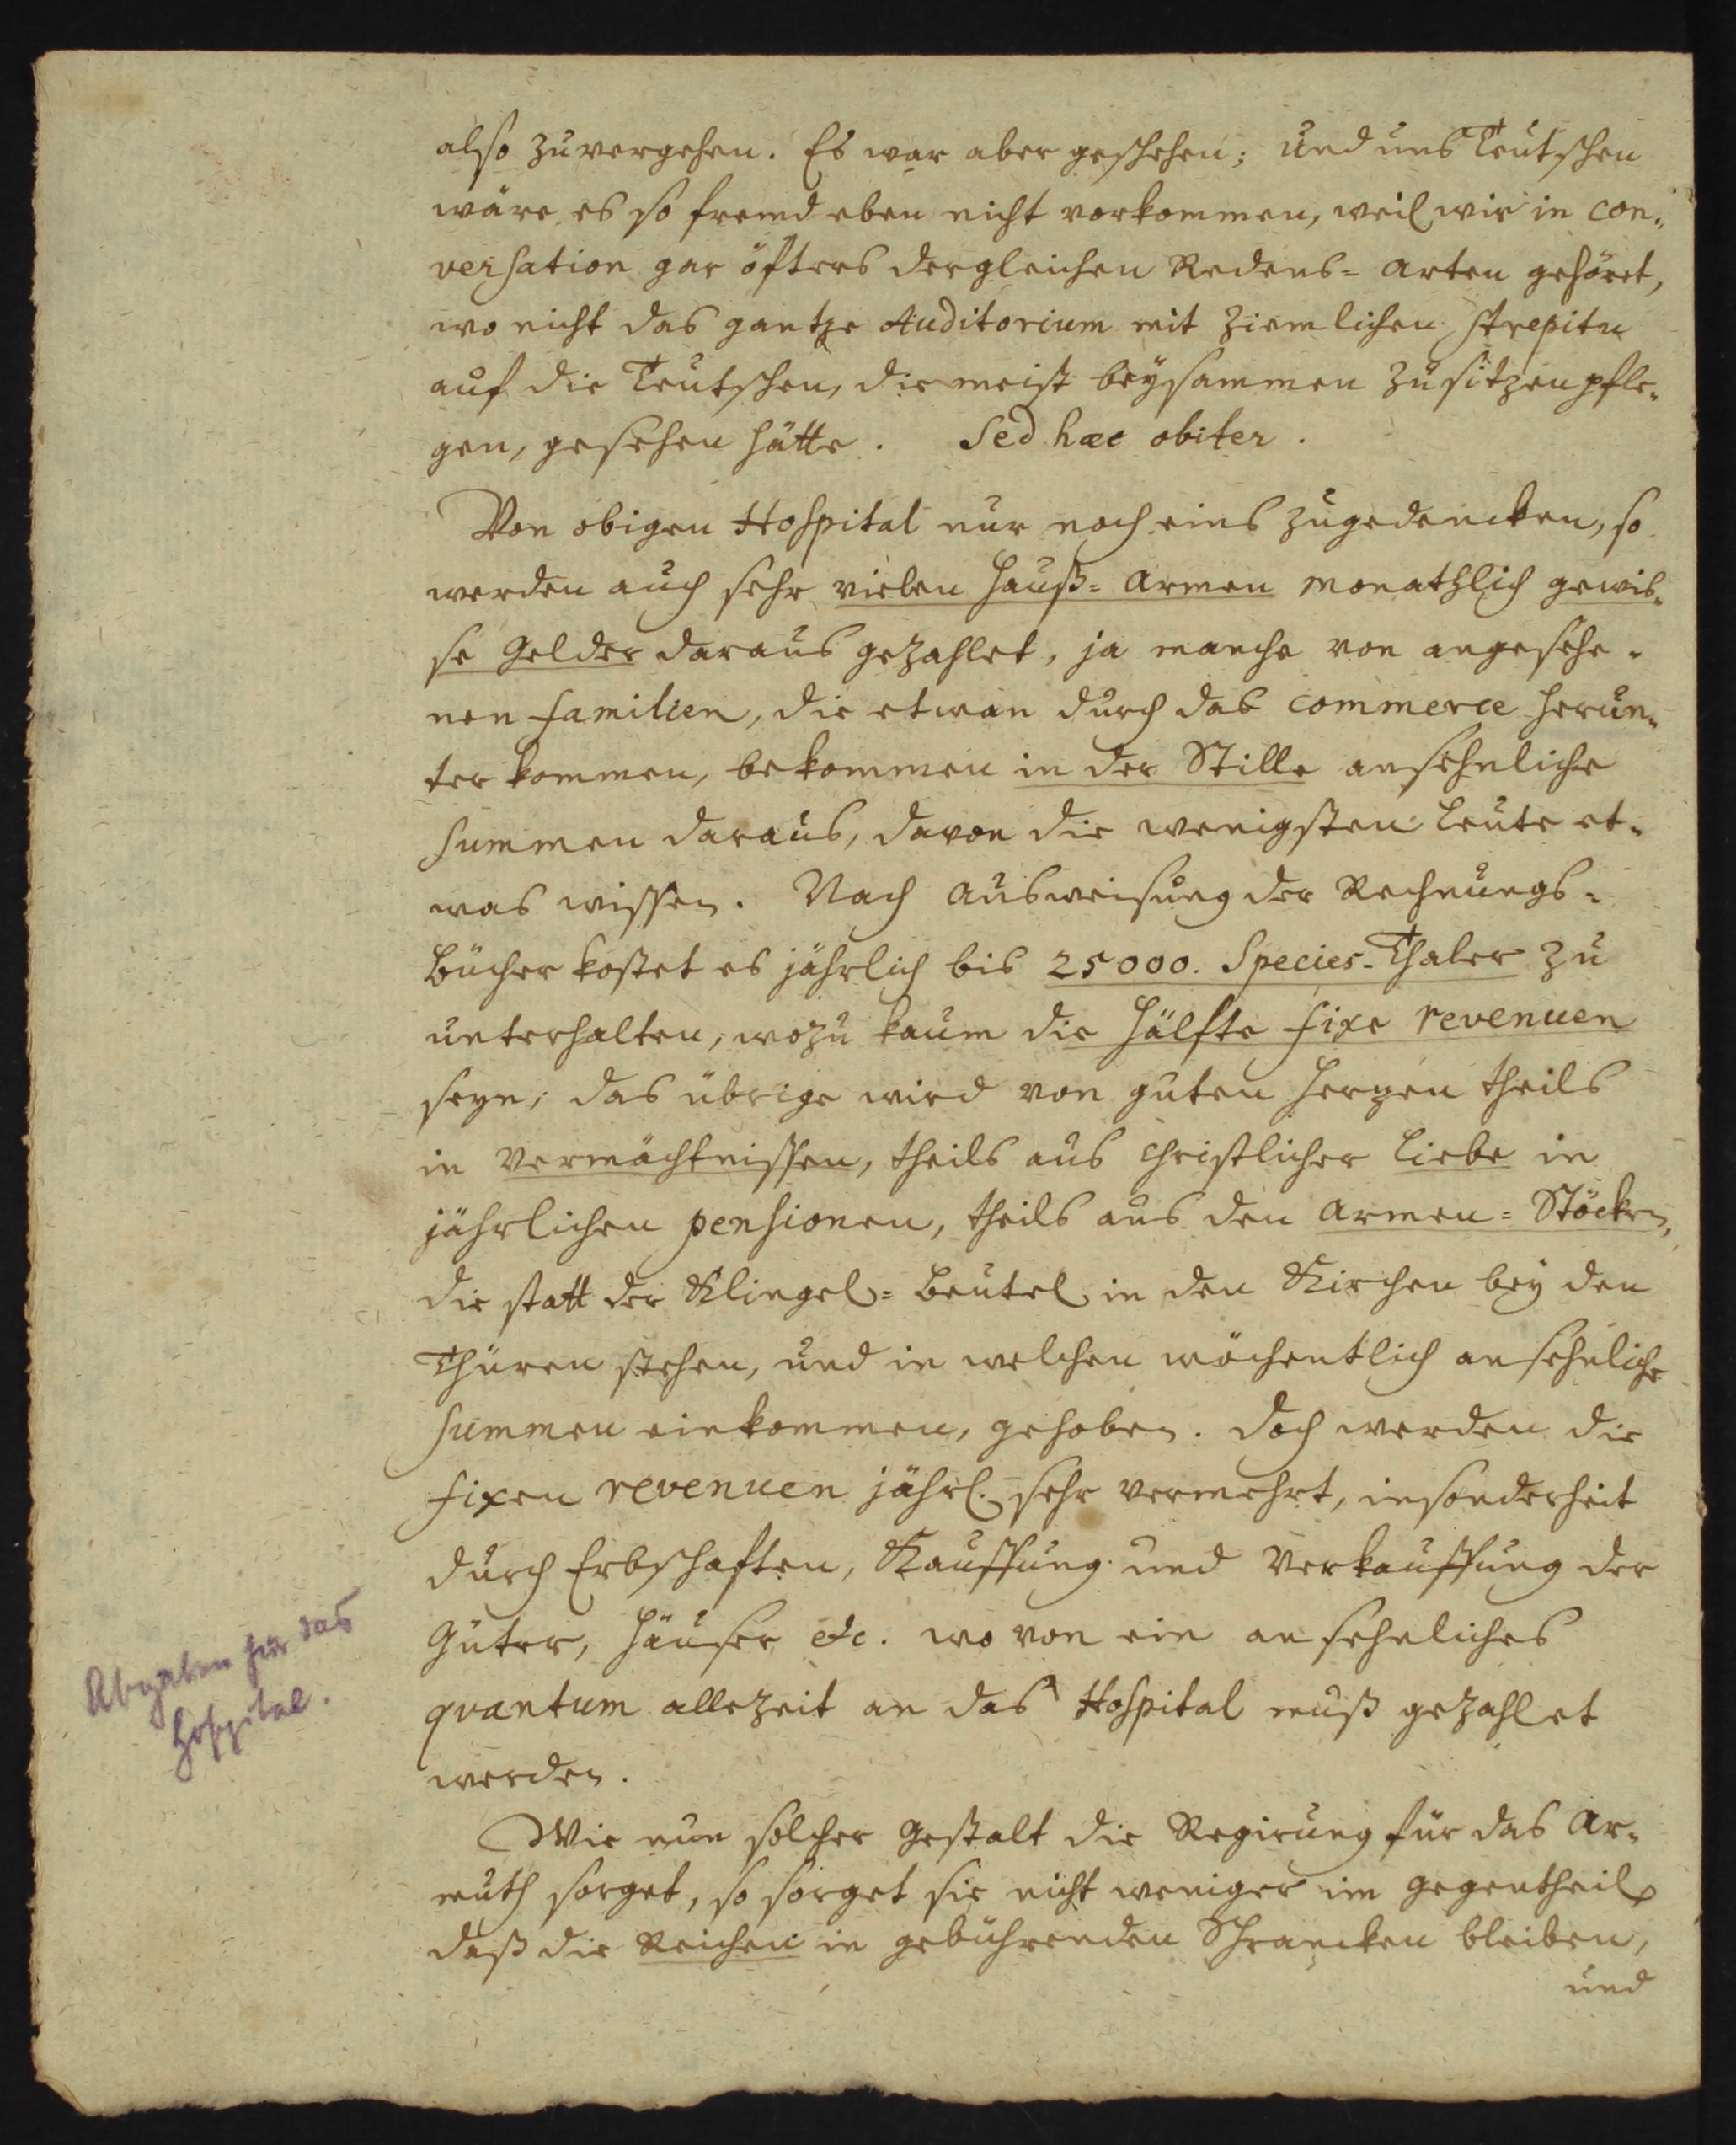 also zuvergehen. Es war aber geschehen; und uns Teutschen
wäre es so fremd eben nicht vorkommen, weil wir in con-
versation gar öfters dergleichen Redens-Arten gehöret,
wo nicht das gantze Auditorium mit ziemlichen strepitu
auf die Teutschen, die meist beysammen zu sitzen pfle-
gen, gesehen hätte. Sed hæc obiter.
Von obigen Hospital nur noch eins zugedencken, so
werden auch sehr vielen Hauß-Armen monathlich gewis-
se Gelder daraus gezahlet, ja manche von angesehe-
nen familien, die etwan durch das commerce herun-
ter kommen, bekommen in der Stille ansehnliche
Summen daraus, davon die wenigsten Leute et-
was wissen. Nach Ausweisung der Rechnungs-
Bücher kostet es jährlich bis 25000. Species-Thaler zu
unterhalten, wozu kaum die Hälfte fixe revenuen
seyn; das übrige wird von guten Herzen theils
in Vermächtnissen, theils aus Christlicher Liebe in
jährlichen pensionen, theils aus den Armen-Stöcken,
die statt der Klingel-Beutel in den Kirchen bey den
Thüren stehen, und in welchen wöchentlich ansehnliche
Summen einkommen, gehoben. Doch werden die
fixen revenuen jährl. sehr vermehrt, insonderheit
durch Erbschaften, Kauffung und Verkauffung der
Güter, Häuser etc. wo von ein ansehnliches
quantum allezeit an das Hospital muß gezahlet
werden.
Abgaben für das
Hospital.
Wie nun solcher Gestalt die Regirung für das Ar-
muth sorget, so sorget sie nicht weniger im Gegentheil
daß die Reichen in gebührenden Schrancken bleiben,
und